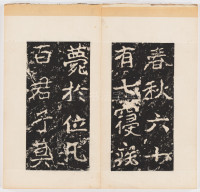 春秋六十
有七寝疾
薨於位凡
百君子莫